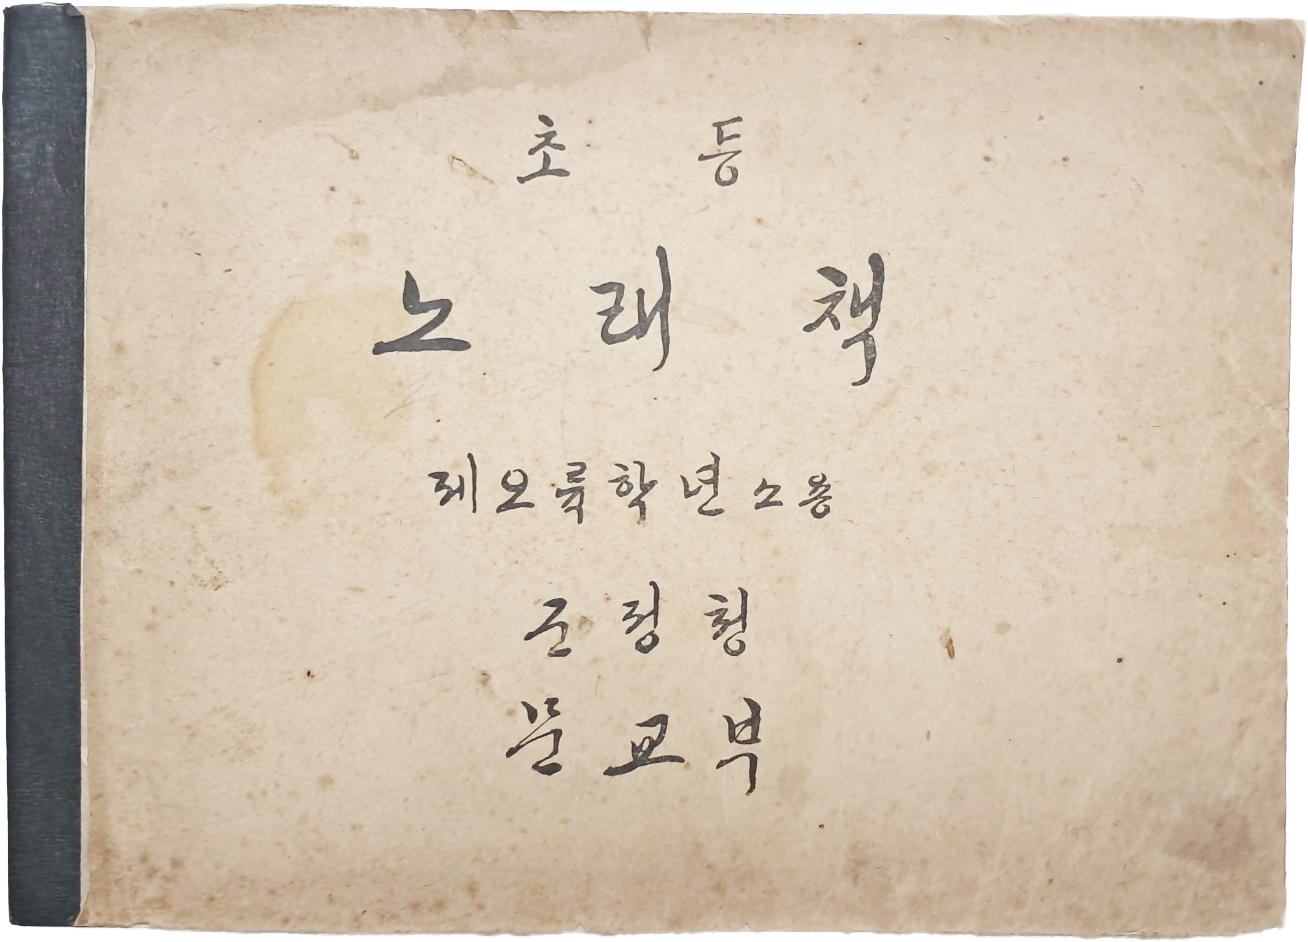 초등
노래책
제오륙학년소용
군정청
문교부